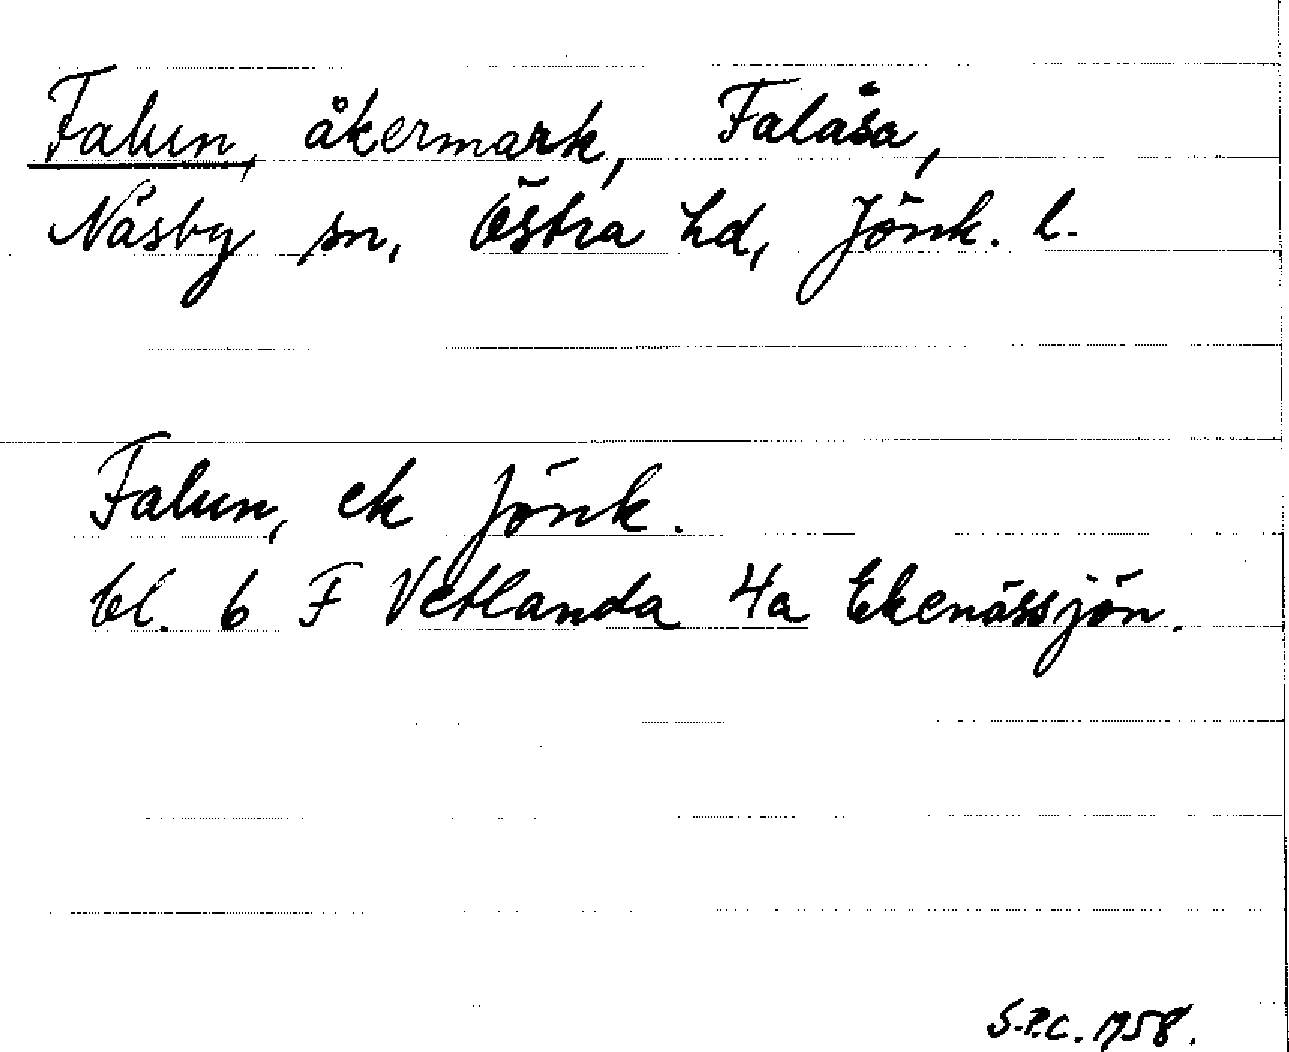 Falun, åkermark, Falåsa,
Näsby sn, Östra hd, Jönk. l.
Falun, ek Jönk.
bl. 6 F Vetlanda 4a Ekenässjön.
S.P.C. 1958.